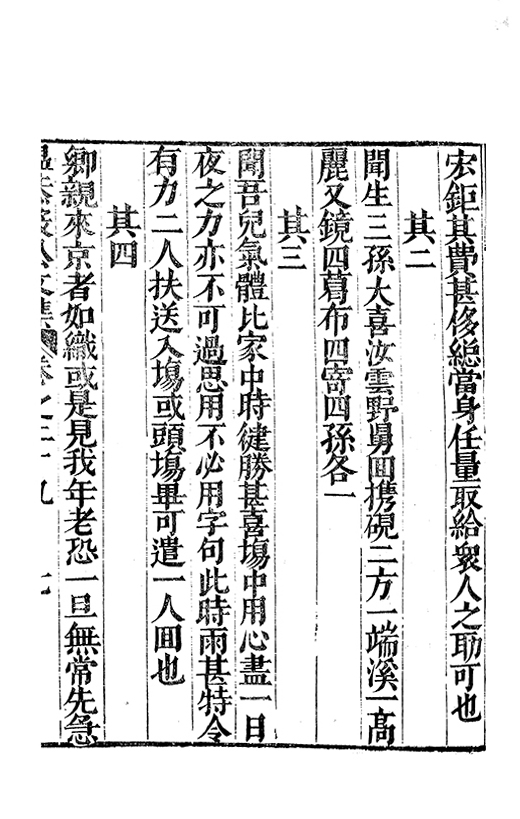 宏鉅其費甚侈總當身任量取給衆人之助可也
其二
聞生三孫大喜汝雲野舅囬携硯二方一端溪一高
麗又鏡四葛布四寄四孫各一
其三
聞吾兒氣體比家中時健勝甚喜塲中用心盡一日
夜之力亦不可過思用不必用字句此時雨甚特令
有力二人扶送入塲或頭塲畢可遣一人囬也
其四
卿親來京者如織或是見我年老恐一旦無常先急